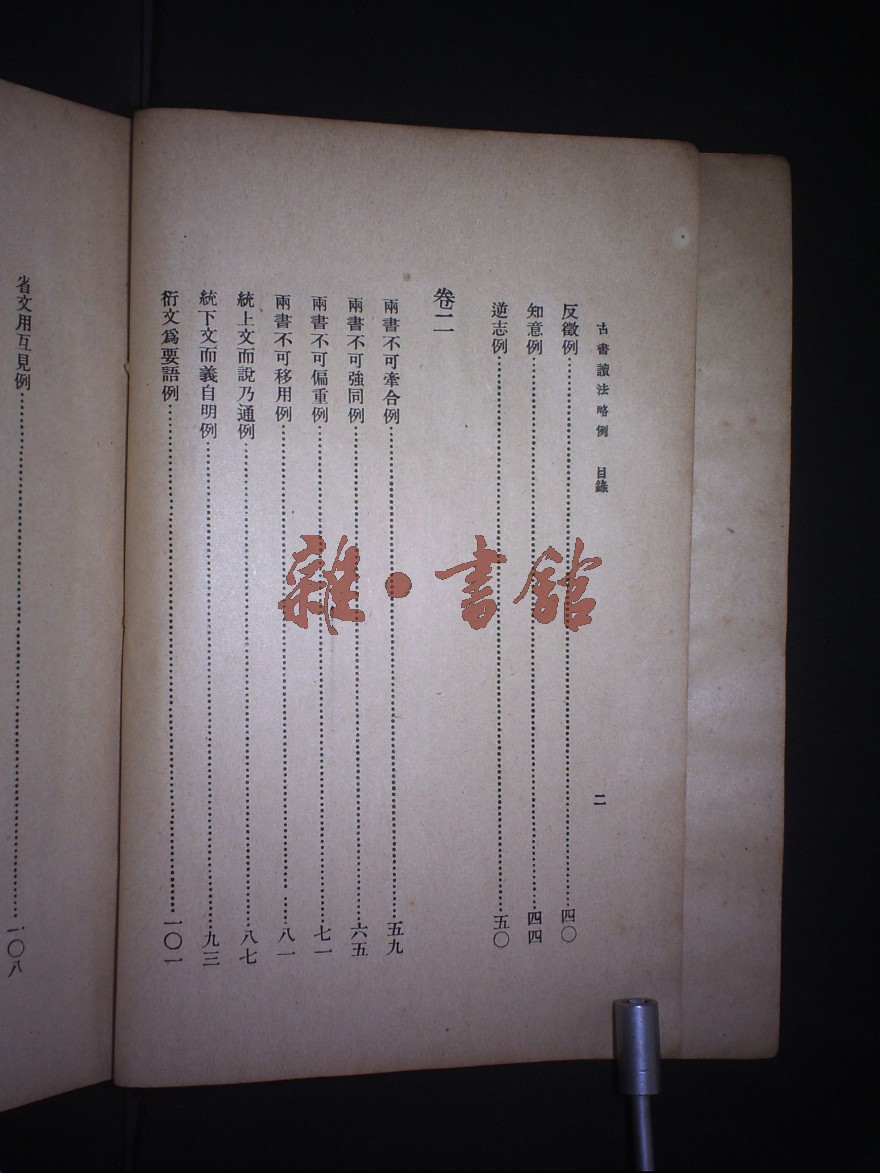 古書讀法略例 目錄 二
反徵例……四〇
知意例……四四
逆志例……五〇
卷二
兩書不可牽合例……五九
兩書不可強同例……六五
兩書不可偏重例……七一
兩書不可移用例……八一
統上文而說乃通例……八七
統下文而義自明例……九三
衍文爲要語例……一〇一
省文用互見例……一〇八
雜·書館